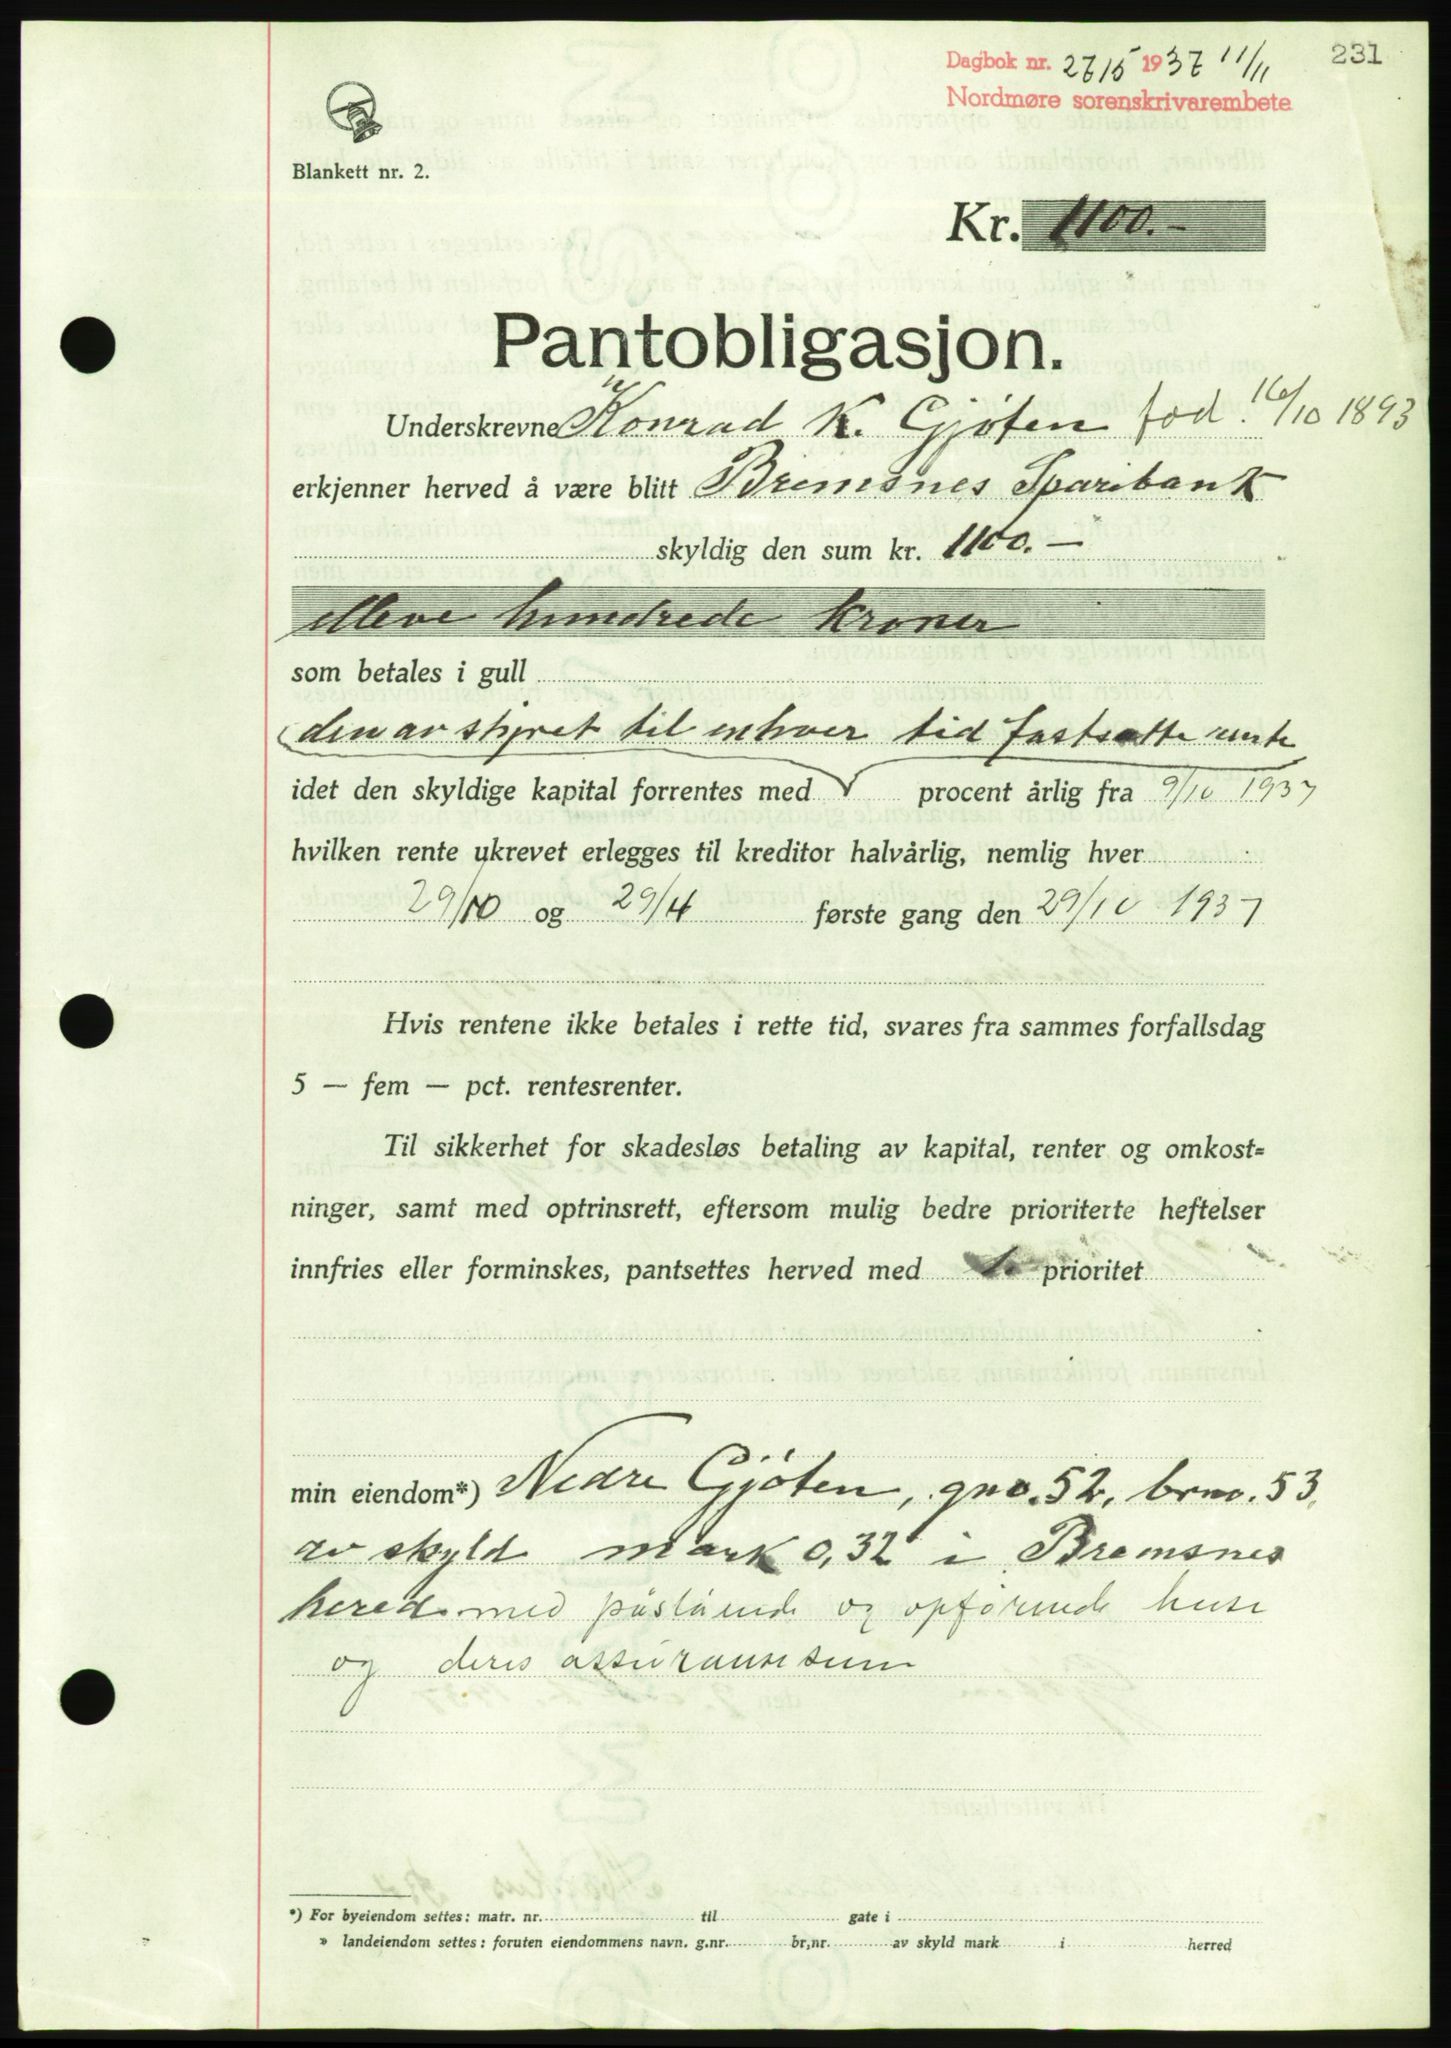 231
Dagbok nr. 2715 1937 11/11
Nordmøre sorenskrivarembete
Blankett nr. 2.
Kr. 1100.-
Pantobligasjon.
Underskrevne Konrad K. Gjøten fød. 16/10 1893
erkjenner herved å være blitt Bremsnes Sparebank
skyldig den sum kr. 1100.-
elleve hundrede kroner
som betales i gull
den av styret til enhver tid fastsatte rente
idet den skyldige kapital forrentes med procent årlig fra 9/10 1937
hvilken rente ukrevet erlegges til kreditor halvårlig, nemlig hver
29/10 og 29/4 første gang den 29/10 1937
Hvis rentene ikke betales i rette tid, svares fra sammes forfallsdag
5 — fem — pct. rentesrenter.
Til sikkerhet for skadesløs betaling av kapital, renter og omkost=
ninger, samt med optrinsrett, eftersom mulig bedre prioriterte heftelser
innfries eller forminskes, pantsettes herved med 1. prioritet
min eiendom*) Nedre Gjøten, gno. 52, brno. 53,
av skyld mark 0,32 i Bremsnes
herred med påstående og opførende huse
og deres assuransesum
*) For byeiendom settes: matr. nr. til gate i
» landeiendom settes: foruten eiendommens navn. g.nr. br,nr. av skyld mark i herred